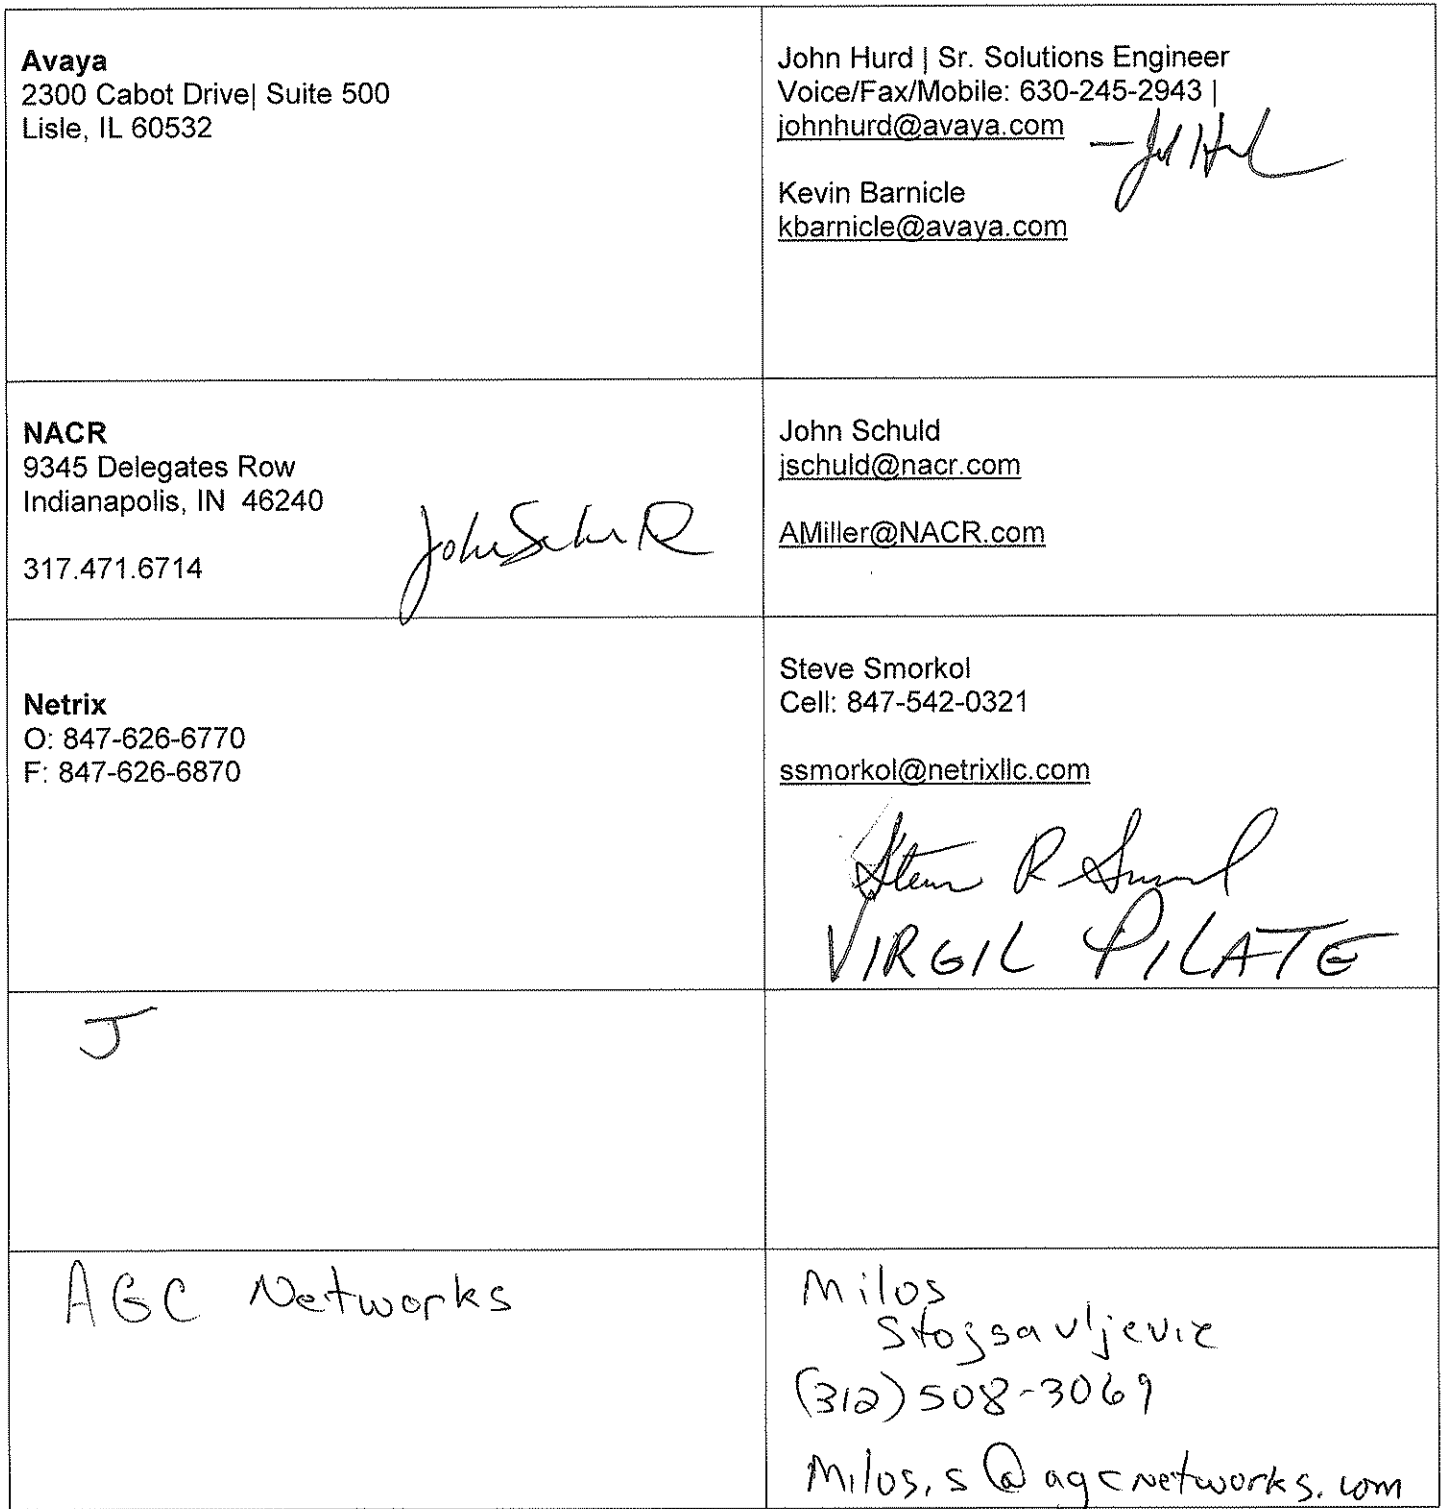 Avaya
2300 Cabot Drive| Suite 500
Lisle, IL 60532
John Hurd | Sr. Solutions Engineer
Voice/Fax/Mobile: 630-245-2943 |
johnhurd@avaya.com
Kevin Barnicle
kbarnicle@avaya.com
NACR
9345 Delegates Row
Indianapolis, IN 46240
317.471.6714
John Schuld
jschuld@nacr.com
AMiller@NACR.com
Netrix
O: 847-626-6770
F: 847-626-6870
Steve Smorkol
Cell: 847-542-0321
ssmorkol@netrixllc.com
VIRGIL PILATE
J
AGC Networks
Milos
(312) 508-3069
Milos.s@agcnetworks.com